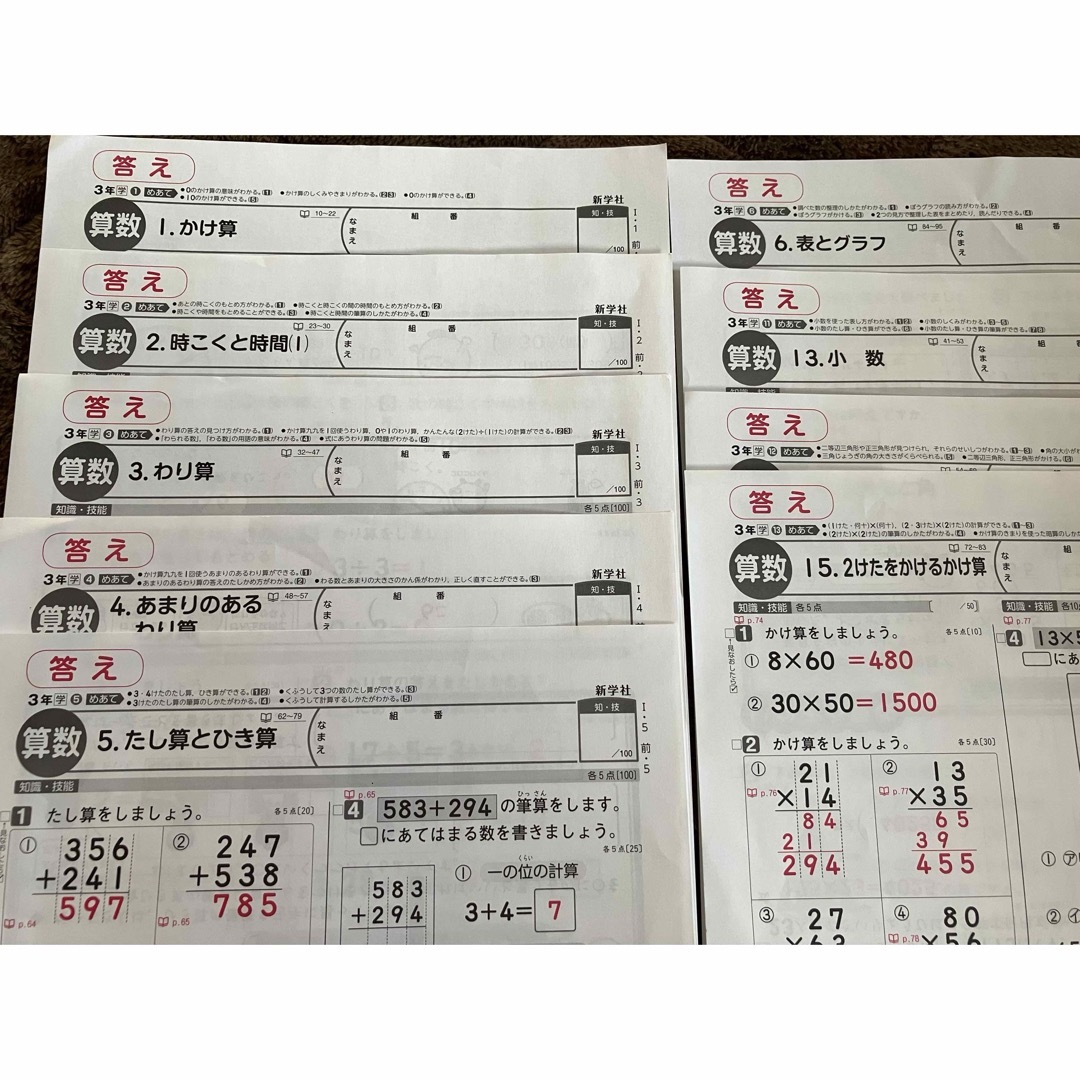 答え
3年 学 1 めあて ●0のかけ算の意味がわかる。(1) ●かけ算のしくみやきまりがわかる。(2 3) ●0のかけ算ができる。(4)
●10のかけ算ができる。(5)
新学社
算数 1.かけ算
10~22
なまえ
組 番
知・技
/100
I・1 前・
答え
3年 学 2 めあて ●あとの時こくのもとめ方がわかる。(1) ●時こくと時こくの間の時間のもとめ方がわかる。(2)
●時こくや時間をもとめることができる。(3) ●時こくと時間の筆算のしかたがわかる。(4)
新学社
算数 2.時こくと時間(1)
23~30
なまえ
組 番
知・技
/100
I・2 前・2
答え
3年 学 3 めあて ●わり算の答えの見つけ方がわかる。(1) ●かけ算九九を1回使うわり算,0や1のわり算,かんたんな(2けた)÷(1けた)の計算ができる。(2 3)
●「わられる数」,「わる数」の用語の意味がわかる。(4) ●式にあうわり算の問題がわかる。(5)
新学社
算数 3.わり算
32~47
なまえ
組 番
知・技
/100
I・3 前・3
知識・技能
各5点[100]
答え
3年 学 4 めあて ●かけ算九九を1回使うあまりのあるわり算ができる。(1)
●あまりのあるわり算の答えのたしかめ方がわかる。(2) ●わる数とあまりの大きさのかん係がわかり,正しく直すことができる。(3)
新学社
算数 4.あまりのある
わり算
48~57
なまえ
組 番
知・技
/100
I・4 前・
答え
3年 学 5 めあて ●3・4けたのたし算,ひき算ができる。(1 2) ●くふうして3つの数のたし算ができる。(3)
●3けたのたし算の筆算のしかたがわかる。(4) ●くふうして計算するしかたがわかる。(5)
新学社
算数 5.たし算とひき算
62~79
なまえ
組 番
知・技
/100
I・5 前・5
知識・技能
各5点[100]
1 たし算をしましょう。
各5点[20]
① 356
+241
597
p.64
② 247
+538
785
p.65
p.65
4 583+294 の筆算をします。
ひっさん
□にあてはまる数を書きましょう。
各5点[25]
583
+294
① 一の位の計算
くらい
3+4= 7
答え
3年 学 6 めあて ●調べた数の整理のしかたがわかる。(1) ●ぼうグラフの読み方がわかる。(2)
●ぼうグラフがかける。(3) ●2つの見方で整理した表をまとめたり,読んだりできる。(4)
算数 6.表とグラフ
84~95
なまえ
組 番
答え
3年 学 11 めあて ●小数を使った表し方がわかる。(1 2) ●小数のしくみがわかる。(3~5)
●小数のたし算・ひき算ができる。(6) ●小数のたし算・ひき算の筆算ができる。(7 8)
算数 13.小 数
41~53
なまえ
組
答え
3年 学 12 めあて ●二等辺三角形や正三角形が見つけられ,それらのせいしつがわかる。(1~3) ●角の大小がわ
●三角じょうぎの角の大きさがくらべられる。(5) ●二等辺三角形,正三角形がかける。(6)
答え
3年 学 13 めあて ●(1けた・何十)×(何十),(2・3けた)×(2けた)の計算ができる。(1~3)
●(2けた)×(2けた)の筆算のしかたがわかる。(4) ●かけ算のきまりを使った暗算のしか
算数 15.2けたをかけるかけ算
72~83
なまえ
組
知識・技能 各5点
/50
知識・技能 各10
p.74
1 かけ算をしましょう。
各5点[10]
見なおしたら
① 8×60 =480
② 30×50=1500
2 かけ算をしましょう。
各5点[30]
① 21
×14
84
21
294
p.76
② 13
×35
65
39
455
p.77
③ 27
×63
④ 80
×56
p.78
p.77
4 13×5
□にあ
① ア
② イ